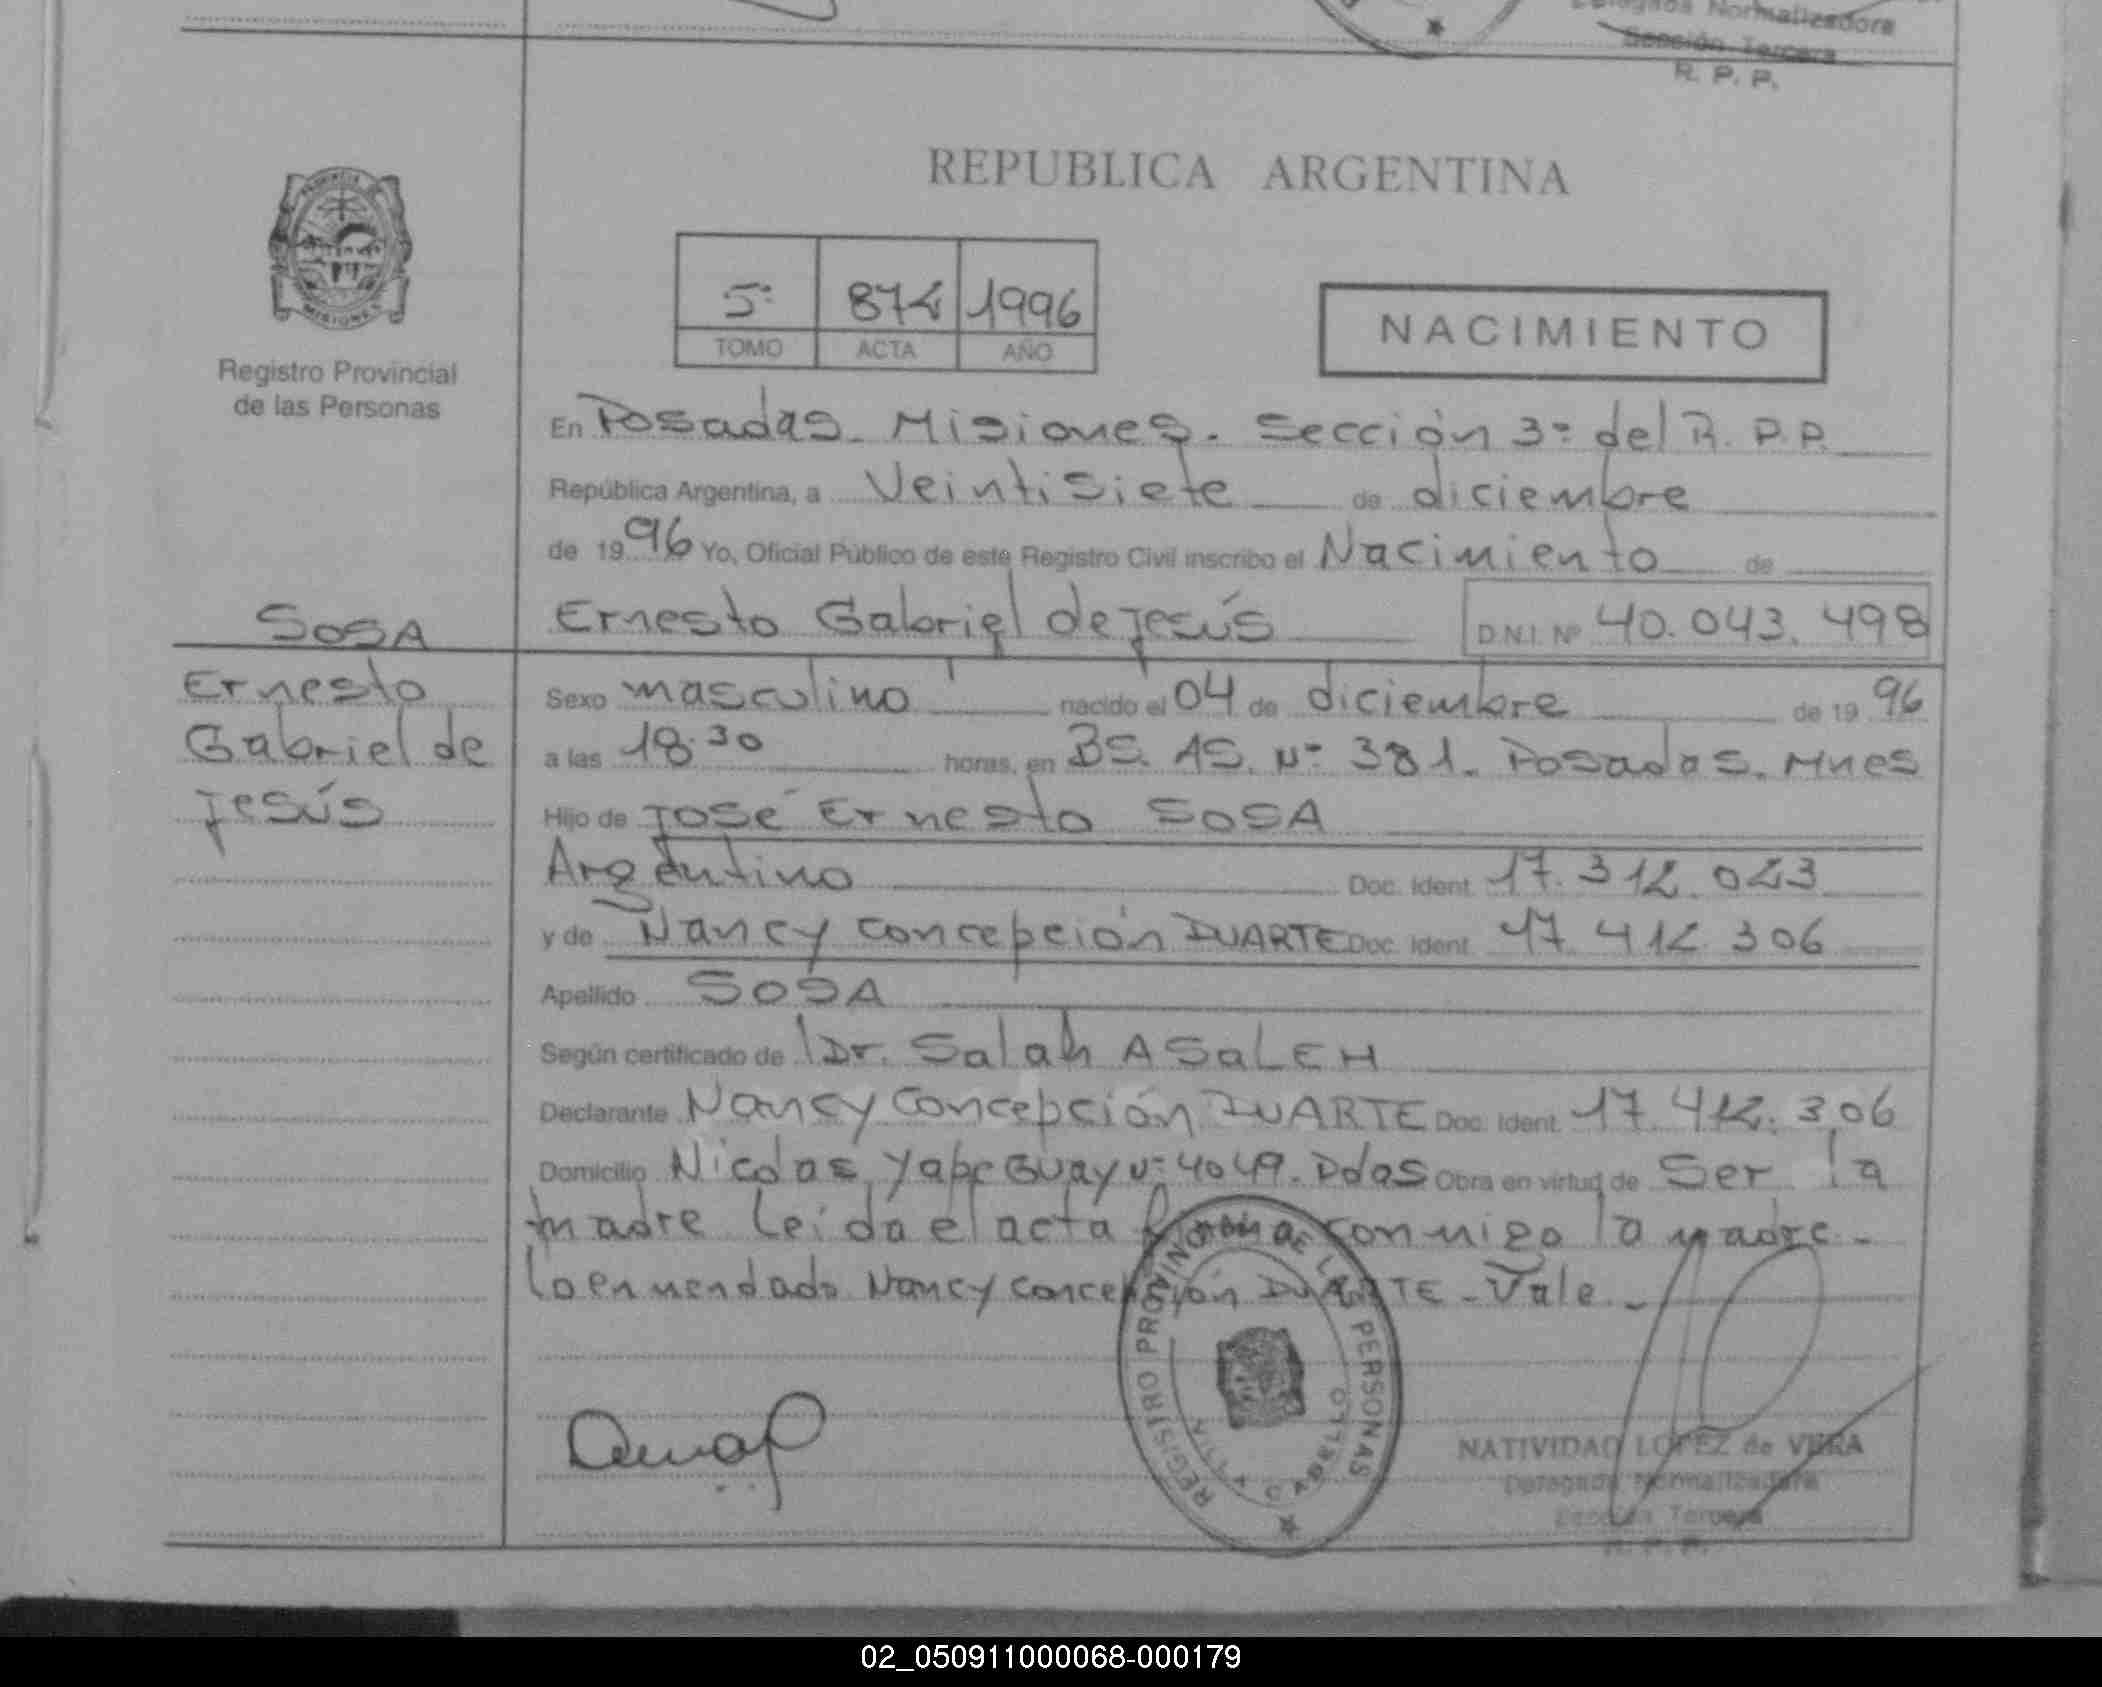 Delegada Normalizadora
Sección Tercera
R. P. P.
PROVINCIA DE
MISIONES
Registro Provincial
de las Personas
REPUBLICA ARGENTINA
5º 874 1996
TOMO ACTA AÑO
NACIMIENTO
En Posadas. Misiones. Sección 3º del R. P. P.
República Argentina, a Veintisiete de diciembre
de 1996 Yo, Oficial Público de este Registro Civil inscribo el Nacimiento de
SOSA
Ernesto Gabriel de Jesús D.N.I. Nº 40.043.498
Ernesto
Gabriel de
Jesús
Sexo masculino nacido el 04 de diciembre de 1996
a las 18.30 horas, en BS. AS. Nº 381. Posadas. Mnes
Hijo de José Ernesto SOSA
Argentino Doc. Ident. 17.312.023
y de Nancy Concepción DUARTE Doc. Ident. 17.412.306
Apellido SOSA
Según certificado de Dr. Salah ASaLEH
Declarante Nancy Concepción DUARTE Doc. Ident. 17.412.306
Domicilio Nicolas Yapeguay Nº 4049. Pdas Obra en virtud de Ser la
madre Leída el acta firma conmigo la madre.-
lo enmendado Nancy Concepción DUARTE - Vale.-
REGISTRO PROVINCIAL DE LAS PERSONAS
NATIVIDAD LOPEZ de VERA
Delegada Normalizadora
Sección Tercera
R. P. P.
02_050911000068-000179